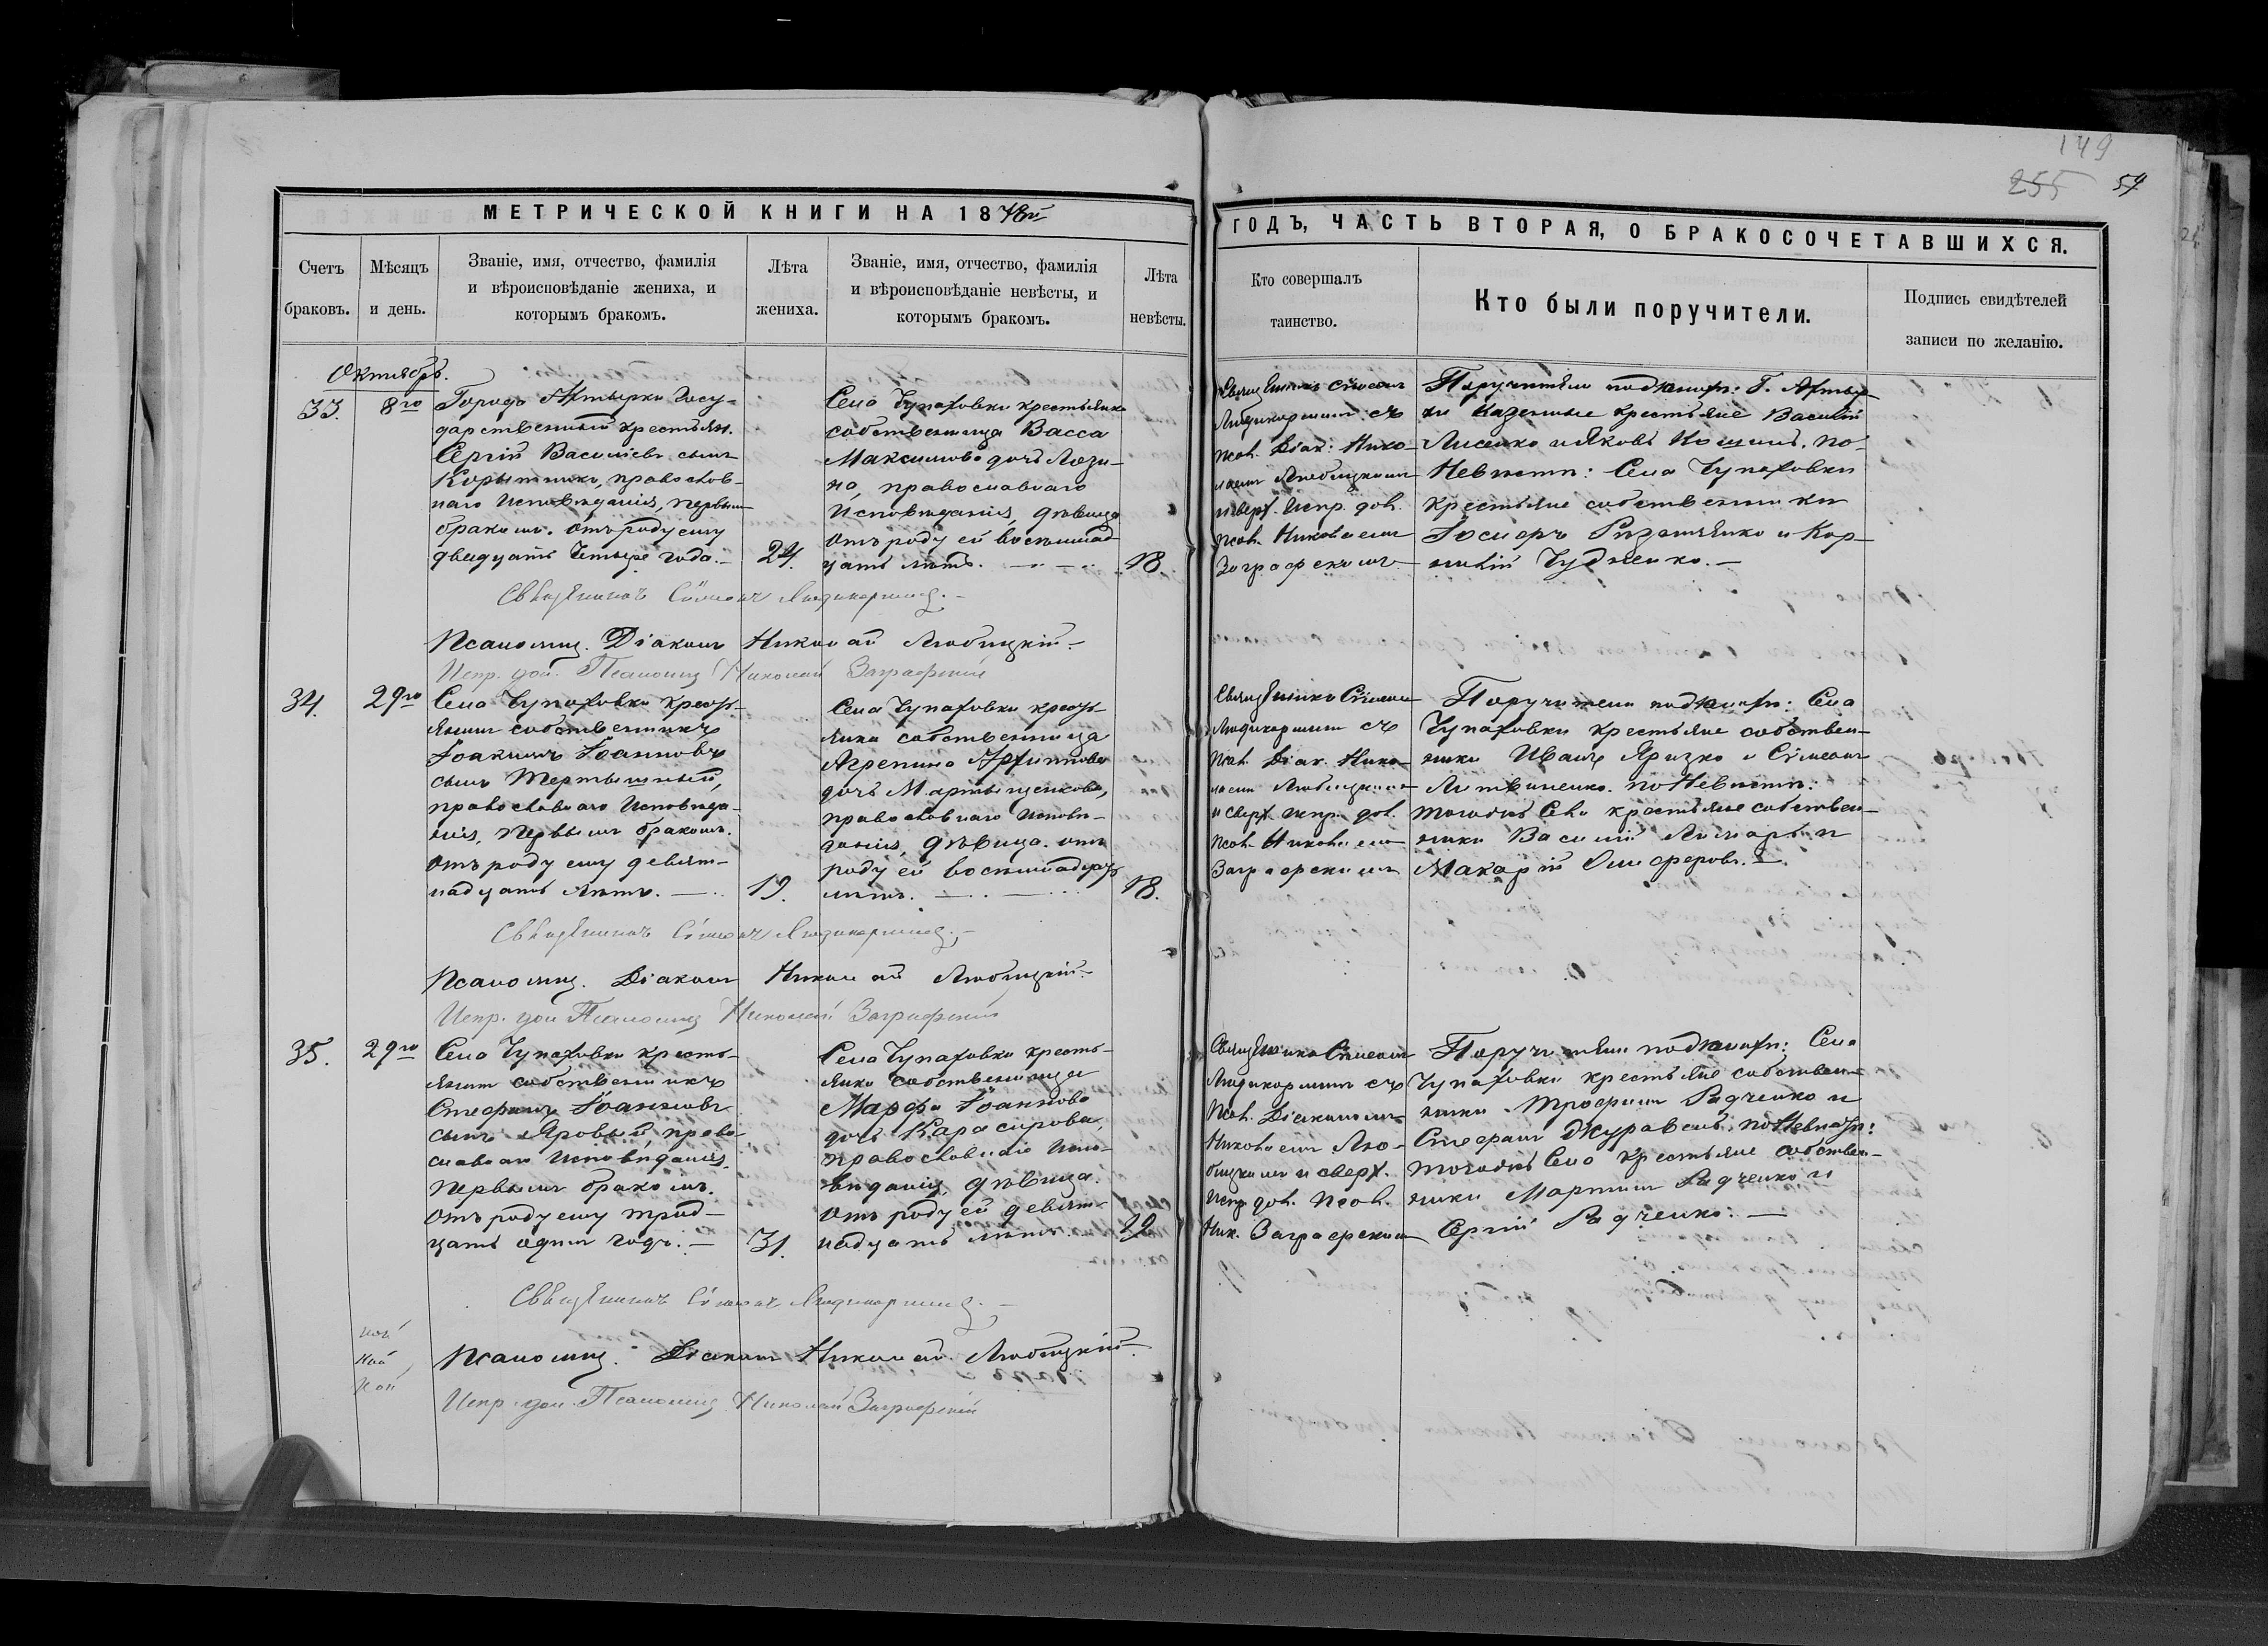 149
255 57
МЕТРИЧЕСКОЙ КНИГИ НА 1878й
ГОДЪ, ЧАСТЬ ВТОРАЯ, О БРАКОСОЧЕТАВШИХСЯ.
Счетъ браковъ.
Мѣсяцъ и день.
Званіе, имя, отчество, фамилія
и вѣроисповѣданіе жениха, и
которымъ бракомъ.
Лѣта жениха.
Званіе, имя, отчество, фамилія
и вѣроисповѣданіе невѣсты, и
которымъ бракомъ.
Лѣта невѣсты.
Кто совершалъ
таинство.
Кто были поручители.
Подпись свидѣтелей
записи по желанію.
Октябрь.
33.
8го
Городъ Ахтырки Госу-
дарственный крестьян.
Сергій Василіевъ сынъ
православ-
наго Исповѣданія, первым
бракомъ. отъ роду ему
двадцать четыре года.
24.
Села Чупаховки крестьянка
собственница Васса
Максимова дочь
православнаго
Исповѣданія, дѣвица
отъ роду ей восемнад-
цать лѣтъ.
18.
Священникъ Сімеон
съ
псал. Діак. Нико-
лаемъ Любицкимъ
и сверх. Испр. дол.
псал. Николаемъ
Заграфскимъ
Поручители по жених: Г. Ахтыр-
ки казенные крестьяне Василій
Лисенко и Яковъ Кошинъ. по
Невѣстѣ: Села Чупаховки
крестьяне собственники
Іосифъ и Кор-
нилій Чудненко.
Священникъ Сімеонъ
Псаломщ. Діаконъ Николай Любицкій
Испр. дол. Псаломщ. Николай Заграфскій
34.
29го
Села Чупаховки крест-
янин собственникъ
Іоакимъ Іоанновъ
сынъ Мертвыщный,
православнаго Исповѣда-
нія, первымъ бракомъ.
отъ роду ему девят-
надцать лѣтъ.
19.
Села Чупаховки крест-
янка собственница
Агрепина
дочь Мартыненкова,
православнаго Исповѣ-
данія, дѣвица. отъ
роду ей восемнадцать
лѣтъ.
18.
Священникъ Сімеон
съ
псал. Діак. Нико-
лаемъ Любицкимъ
и сверх. испр. дол.
псал. Николаем
Заграфскимъ
Поручители по жених: Села
Чупаховки крестьяне собствен-
ники Иванъ Яризко и Сімеонъ
Литвиненко. по Невѣстѣ:
того же Села крестьяне собствен-
ники Василій Лимарь и
Макарій
Священникъ Сімеонъ
Псаломщ. Діаконъ Николай Любицкій
Испр. дол. Псаломщ. Николай Заграфскій
35.
29го
Села Чупаховки кресть-
янин собственникъ
Стефанъ Іоанновъ
сынъ Яровый, право-
славнаго Исповѣданія,
первымъ бракомъ.
отъ роду ему трид-
цать одинъ годъ.
31.
Села Чупаховки кресть-
янка собственница
Марфа Іоаннова
дочь Карасирова,
православнаго Испо-
вѣданія, дѣвица.
отъ роду ей девят-
надцать лѣтъ.
19
Священникъ Сімеон
съ
псал. Діакономъ
Николаемъ Лю-
бицкимъ и сверх.
испр. дол. псал.
Ник. Заграфским
Поручители по жених: Села
Чупаховки крестьяне собствен-
ники Трофимъ Радченко и
Стефанъ Журавель. по Невѣстѣ:
того же Села крестьяне собствен-
ники Мартинъ Радченко и
Сергій Радченко.
Священникъ Сімеонъ
Псаломщ. Діаконъ Николай Любицкій
Испр. дол. Псаломщ. Николай Заграфскій